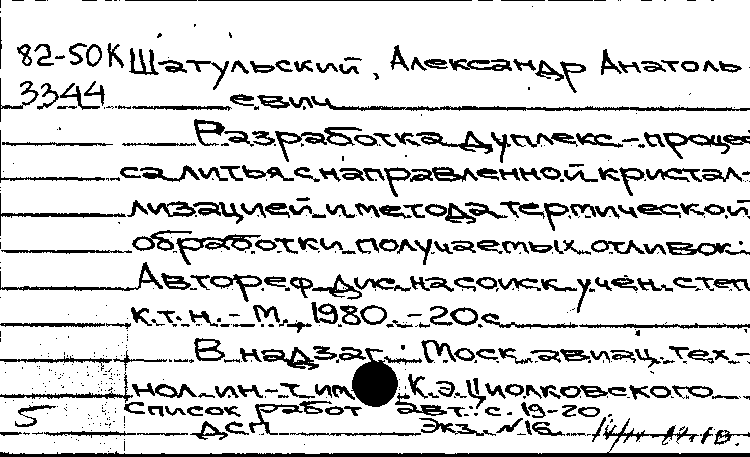 82-50К Шатульский, Александр Анатоль-
3344 евич
Разработка дуплекс-процес-
са литья с направленной кристал-
лизацией и метода термической
обработки получаемых отливок:
Автореф. дис. на соиск. учен. степ.
к.т.н. - М., 1980. - 20с.
В надзаг.: Моск. авиац. тех-
нол. ин-т им. К.Э.Циолковского
Список работ авт.: с. 19-20.
5 ДСП Экз. №16